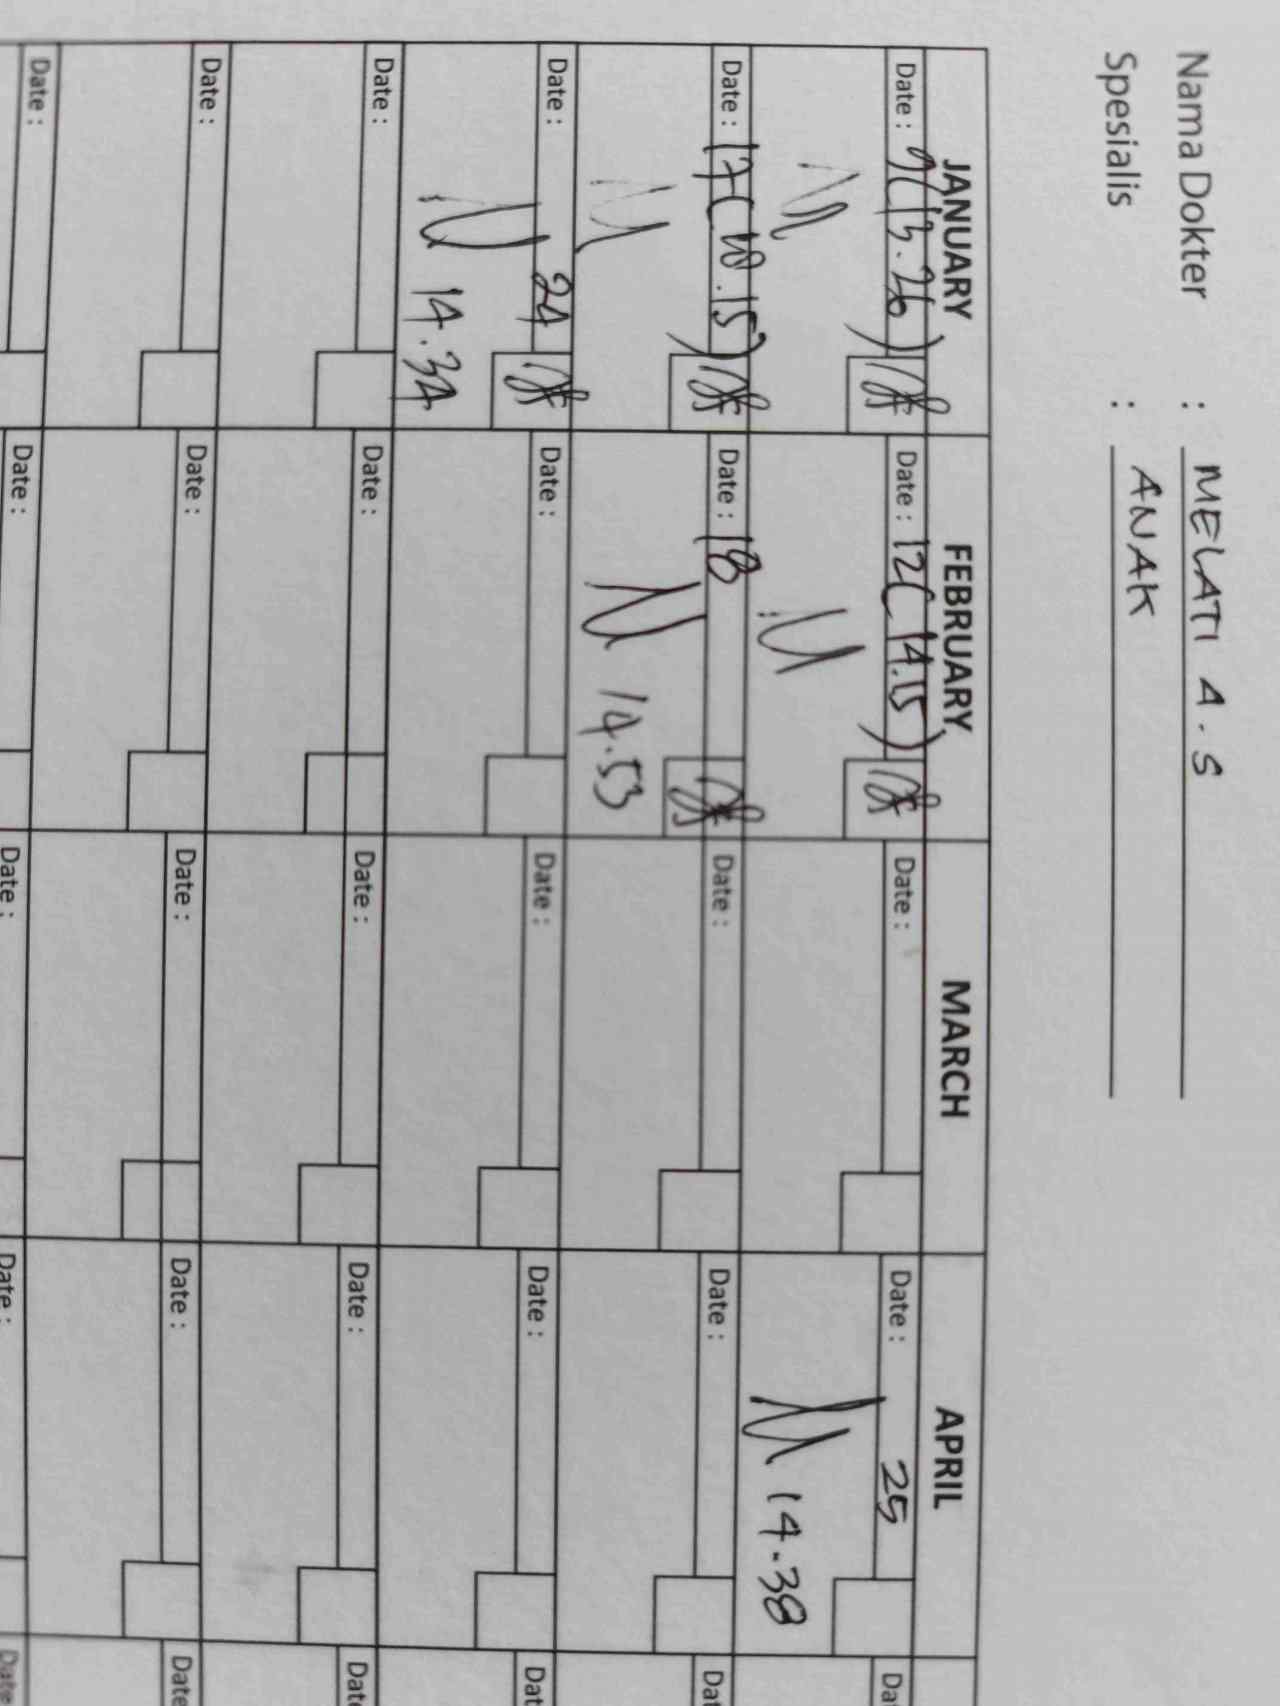 Nama Dokter : MELATI A.S
Spesialis : ANAK
JANUARY FEBRUARY MARCH APRIL
Date : 9(13.26) Date : 12(14.15) Date : Date : 25
14.38
Date : 17(10.15) Date : 18 Date : Date :
14.53
Date : 24 Date : Date : Date :
14.34
Date : Date : Date : Date :
Date : Date : Date : Date : Date
Date : Date : Date : Date :